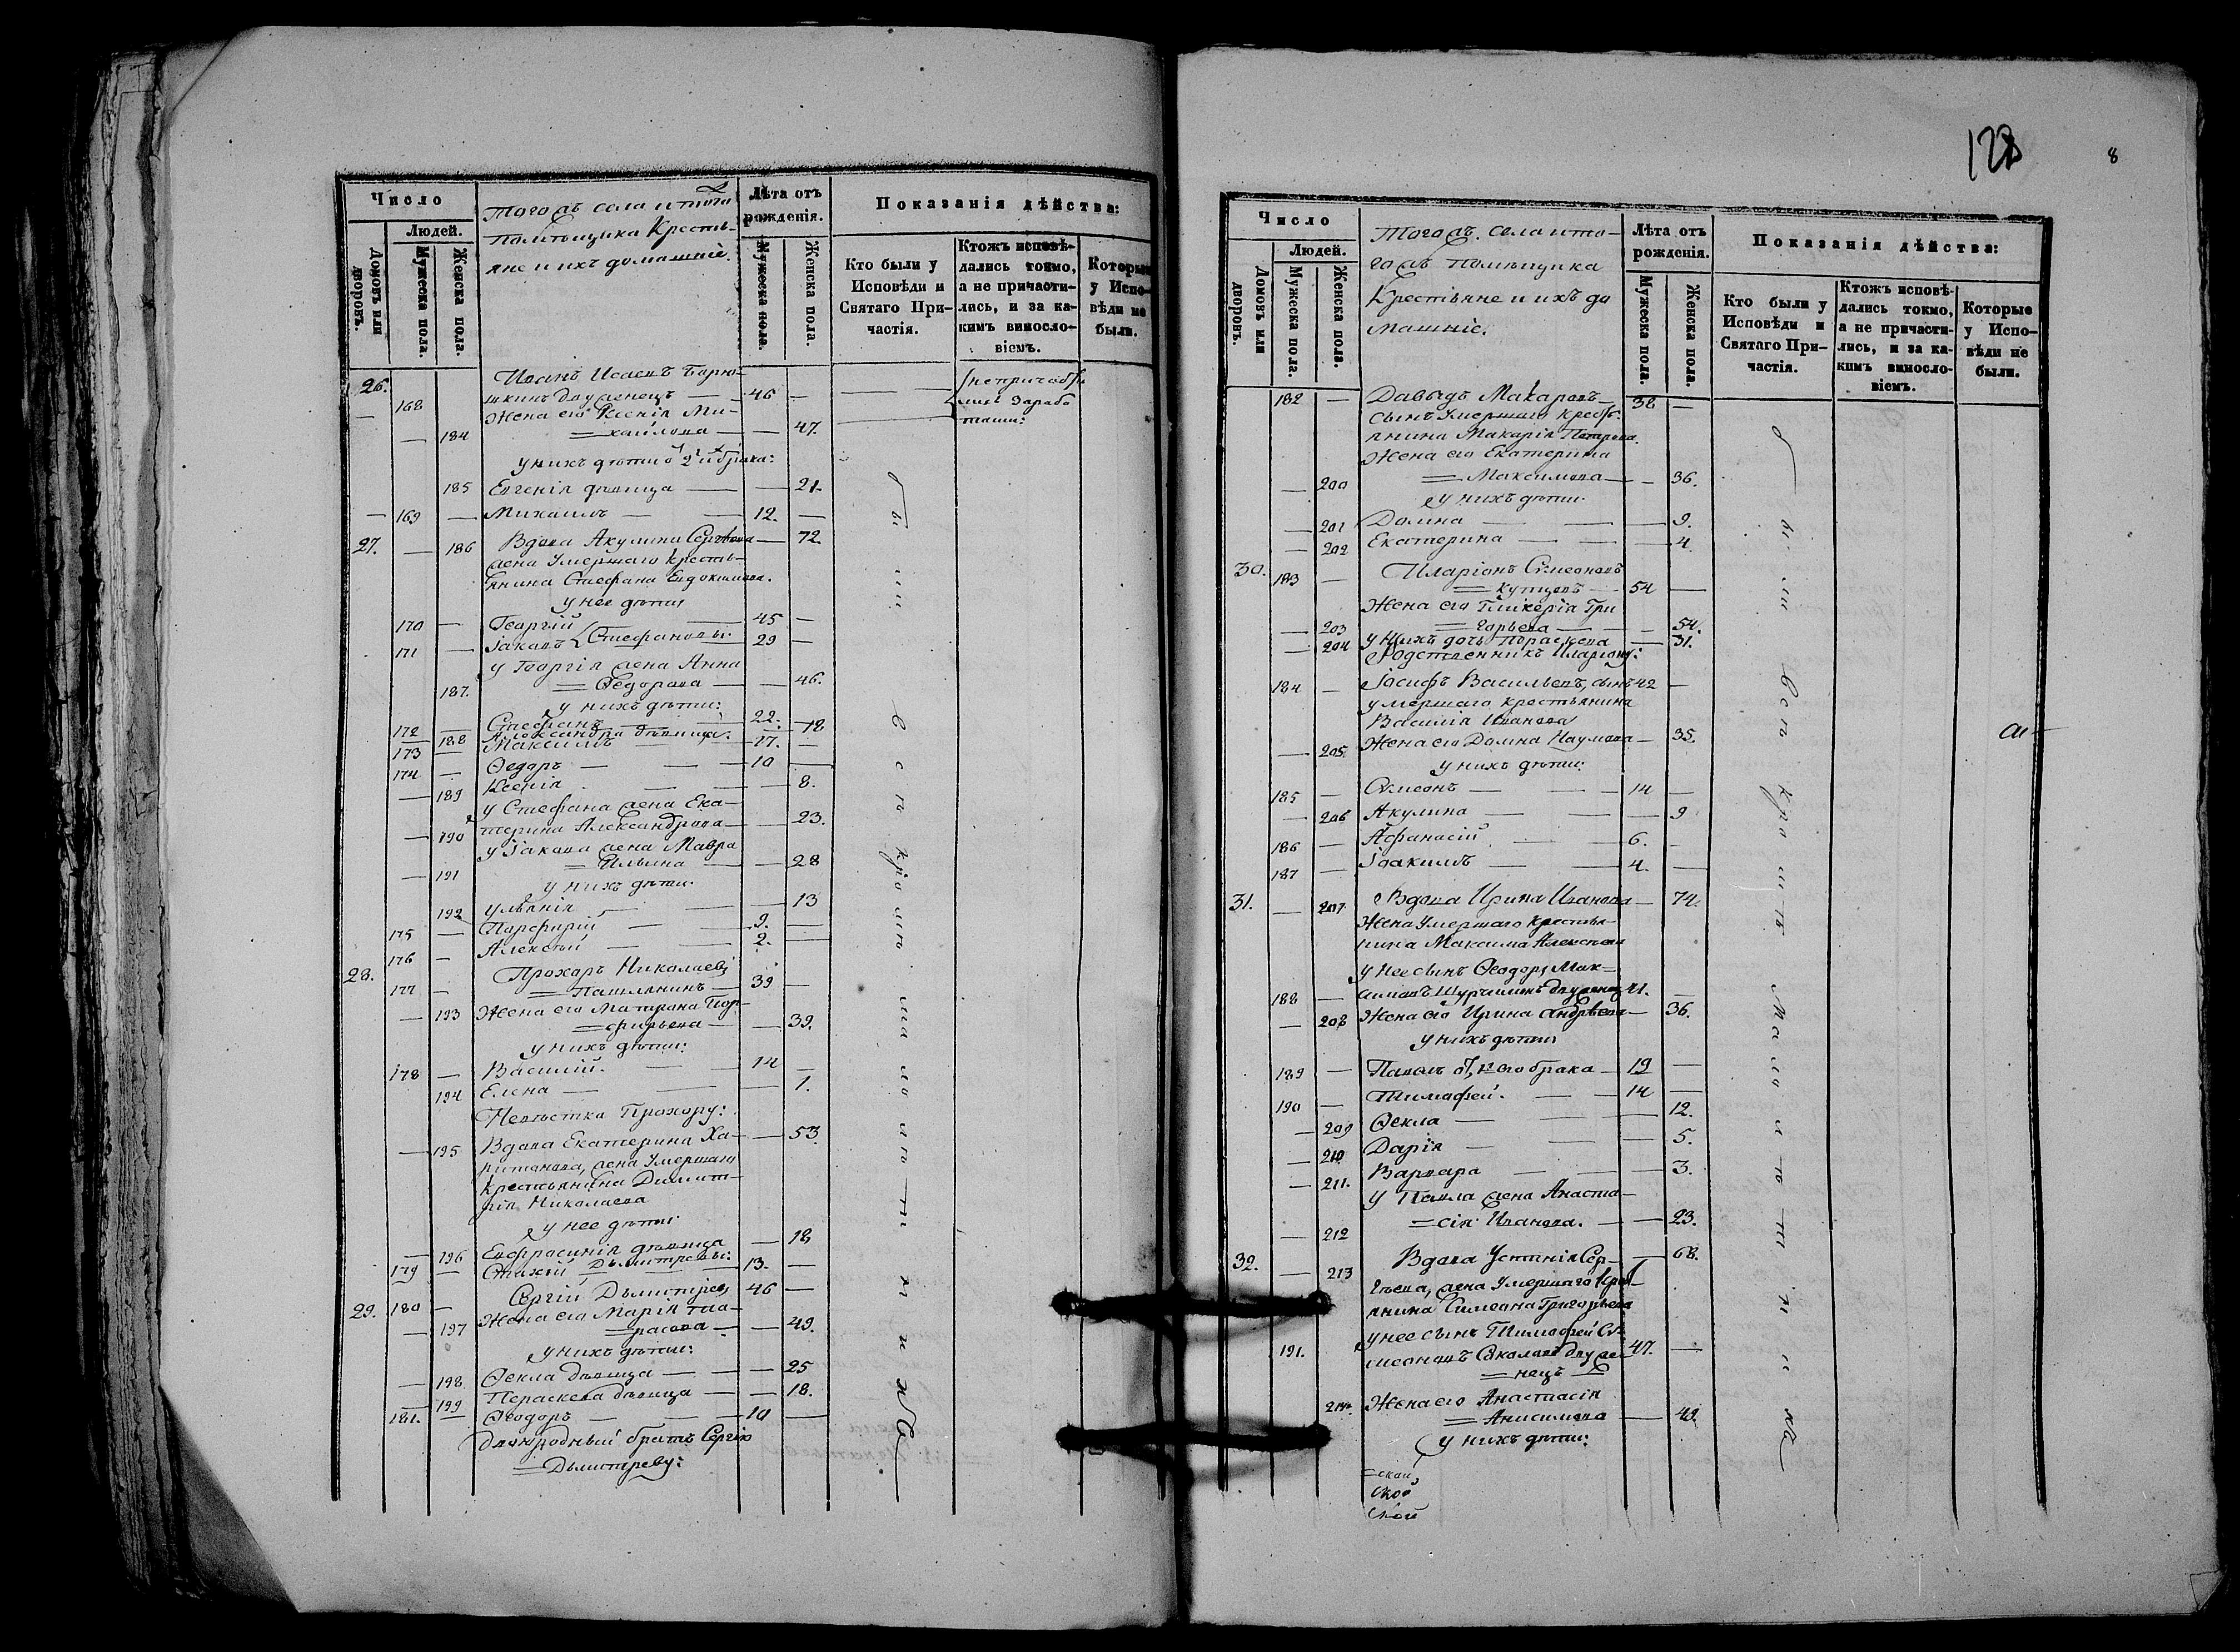 Число
Людей.
Домовъ или дворовъ.
Мужеска пола.
Женска пола.
Тогожъ села и того
помѣщика Кресть-
яне и ихъ домашніе.
Лѣта отъ рожденія.
Мужеска пола.
Женска пола.
Показанія дѣйства:
Кто были у Исповѣди и Святаго При-частія.
Ктожъ исповѣ-дались токмо, а не причасти-лись, и за ка-кимъ винословіемъ.
Которые у Испо-вѣди не были.
26. 168 Иоанъ Исаевъ
двуженецъ — 46 —
Жена его Ксенія Ми-
— 184 =хайлова — — 47.
у нихъ дѣти отъ 2го брака:
185 Евгенія дѣвица — — 21.
— 169 — Михаилъ — 12. —
27. — 186 Вдова Акулина Сергѣева — 72.
жена умершаго кресть-
янина Стефана Евдокимова.
у нее дѣти
170 — Георгій — 45 —
171 — Іаковъ Стефановы. 29 —
у Георгія жена Анна
187. =Ѳедорова — — 46.
у нихъ дѣти:
172 — Стефанъ — 22. —
188 Александра дѣвица. — 18
173 — Максимъ — 17. —
174 — Ѳедоръ — 10 —
— 189 Ксенія — — 8.
у Стефана жена Ека-
— 190 терина Александрова — — 23.
у Іакова жена Мавра
— 191 =Ильина — — 28
у нихъ дѣти.
192 Ульянія — 13
175 — Порфирій — 9. —
176 — Алексѣй — 2. —
28. Прохоръ Николаевъ
177 — 39 —
— 193 Жена его Матрона Пор-
=фирьева — — 39.
у нихъ дѣти:
178 — Василій. — 14 —
194 Елена — — 1.
Невѣстка Прохору:
— 195 Вдова Екатерина Ха- — 53
ритонова, жена умершаго
крестьянина Димит-
рія Николаева
у нее дѣти
— 196 Евфросинія дѣвица — 18
179 — Дьмитревы: 13. —
29. 180 — Сергій Дьмитревъ 46 —
— 197 Жена его Марія Та-
=расова — — 49.
у нихъ дѣти:
— 198 Ѳекла дѣвица — — 25
— 199 Параскева дѣвица — — 18.
181. — Ѳеодоръ — 10 —
двоюродный братъ Сергію
=Дьмитреву:
были
у
исп
128
8
Число
Людей.
Домовъ или дворовъ.
Мужеска пола.
Женска пола.
Тогожъ села и то-
гожъ помѣщика
Крестьяне и ихъ до
машніе.
Лѣта отъ рожденія.
Мужеска пола.
Женска пола.
Показанія дѣйства:
Кто были у Исповѣди и Святаго При-частія.
Ктожъ исповѣ-дались токмо, а не причасти-лись, и за ка-кимъ винословіемъ.
Которые у Испо-вѣди не были.
182 — Давыдъ Макаровъ — 38 —
сынъ умершаго крест-
янина Макарія Петрова.
Жена его Екатерина
— 200 =Максимова — — 36.
у нихъ дѣти.
— 201 Домна — — 9.
— 202 Екатерина — — 4.
30. 183 — Иларіонъ Симеоновъ
=Купцовъ — 54 —
Жена его Гликерія Гри
— 203 =горьева — — 54.
— 204 у нихъ дочь Параскева — 31.
Родственникъ Иларіону:
184 — Іосифъ Васильевъ, сынъ 42 —
умершаго крестьянина
Василія Иванова
— 205 Жена его Домна Наумова — 35.
у нихъ дѣти:
185 — Симеонъ — 14 —
— 206 Акулина — — 9
186 — Афанасій — 6. —
187 — Іоакимъ — 4. —
31. — 207 Вдова Ирина Иванова — 74.
Жена умершаго крестья-
нина Максима Алексѣева
у нее сынъ Ѳеодоръ Мак-
188 — симовъ двуженец 41. —
— 208 Жена его Ирина Андрѣева — 36.
у нихъ дѣти
189 — Павелъ отъ 1го его брака — 19 —
190 — Тимофей. — 14 —
— 209 Ѳекла — — 12.
— 210 Дарія — — 5.
— 211. Варвара — — 3.
у Павла жена Анаста-
— 212 =сія Иванова. — — 23.
32. — 213 Вдова Устинія Сер- — 68.
гѣева, жена умершаго крест-
янина Симеона Григорьева
у нее сынъ Тимофей Си-
191. меоновъ Соколовъ двуже- 47. —
=нецъ
214. Жена его Анастасія
=Анисимова — 49.
у нихъ дѣти:
=ской
ской
ской